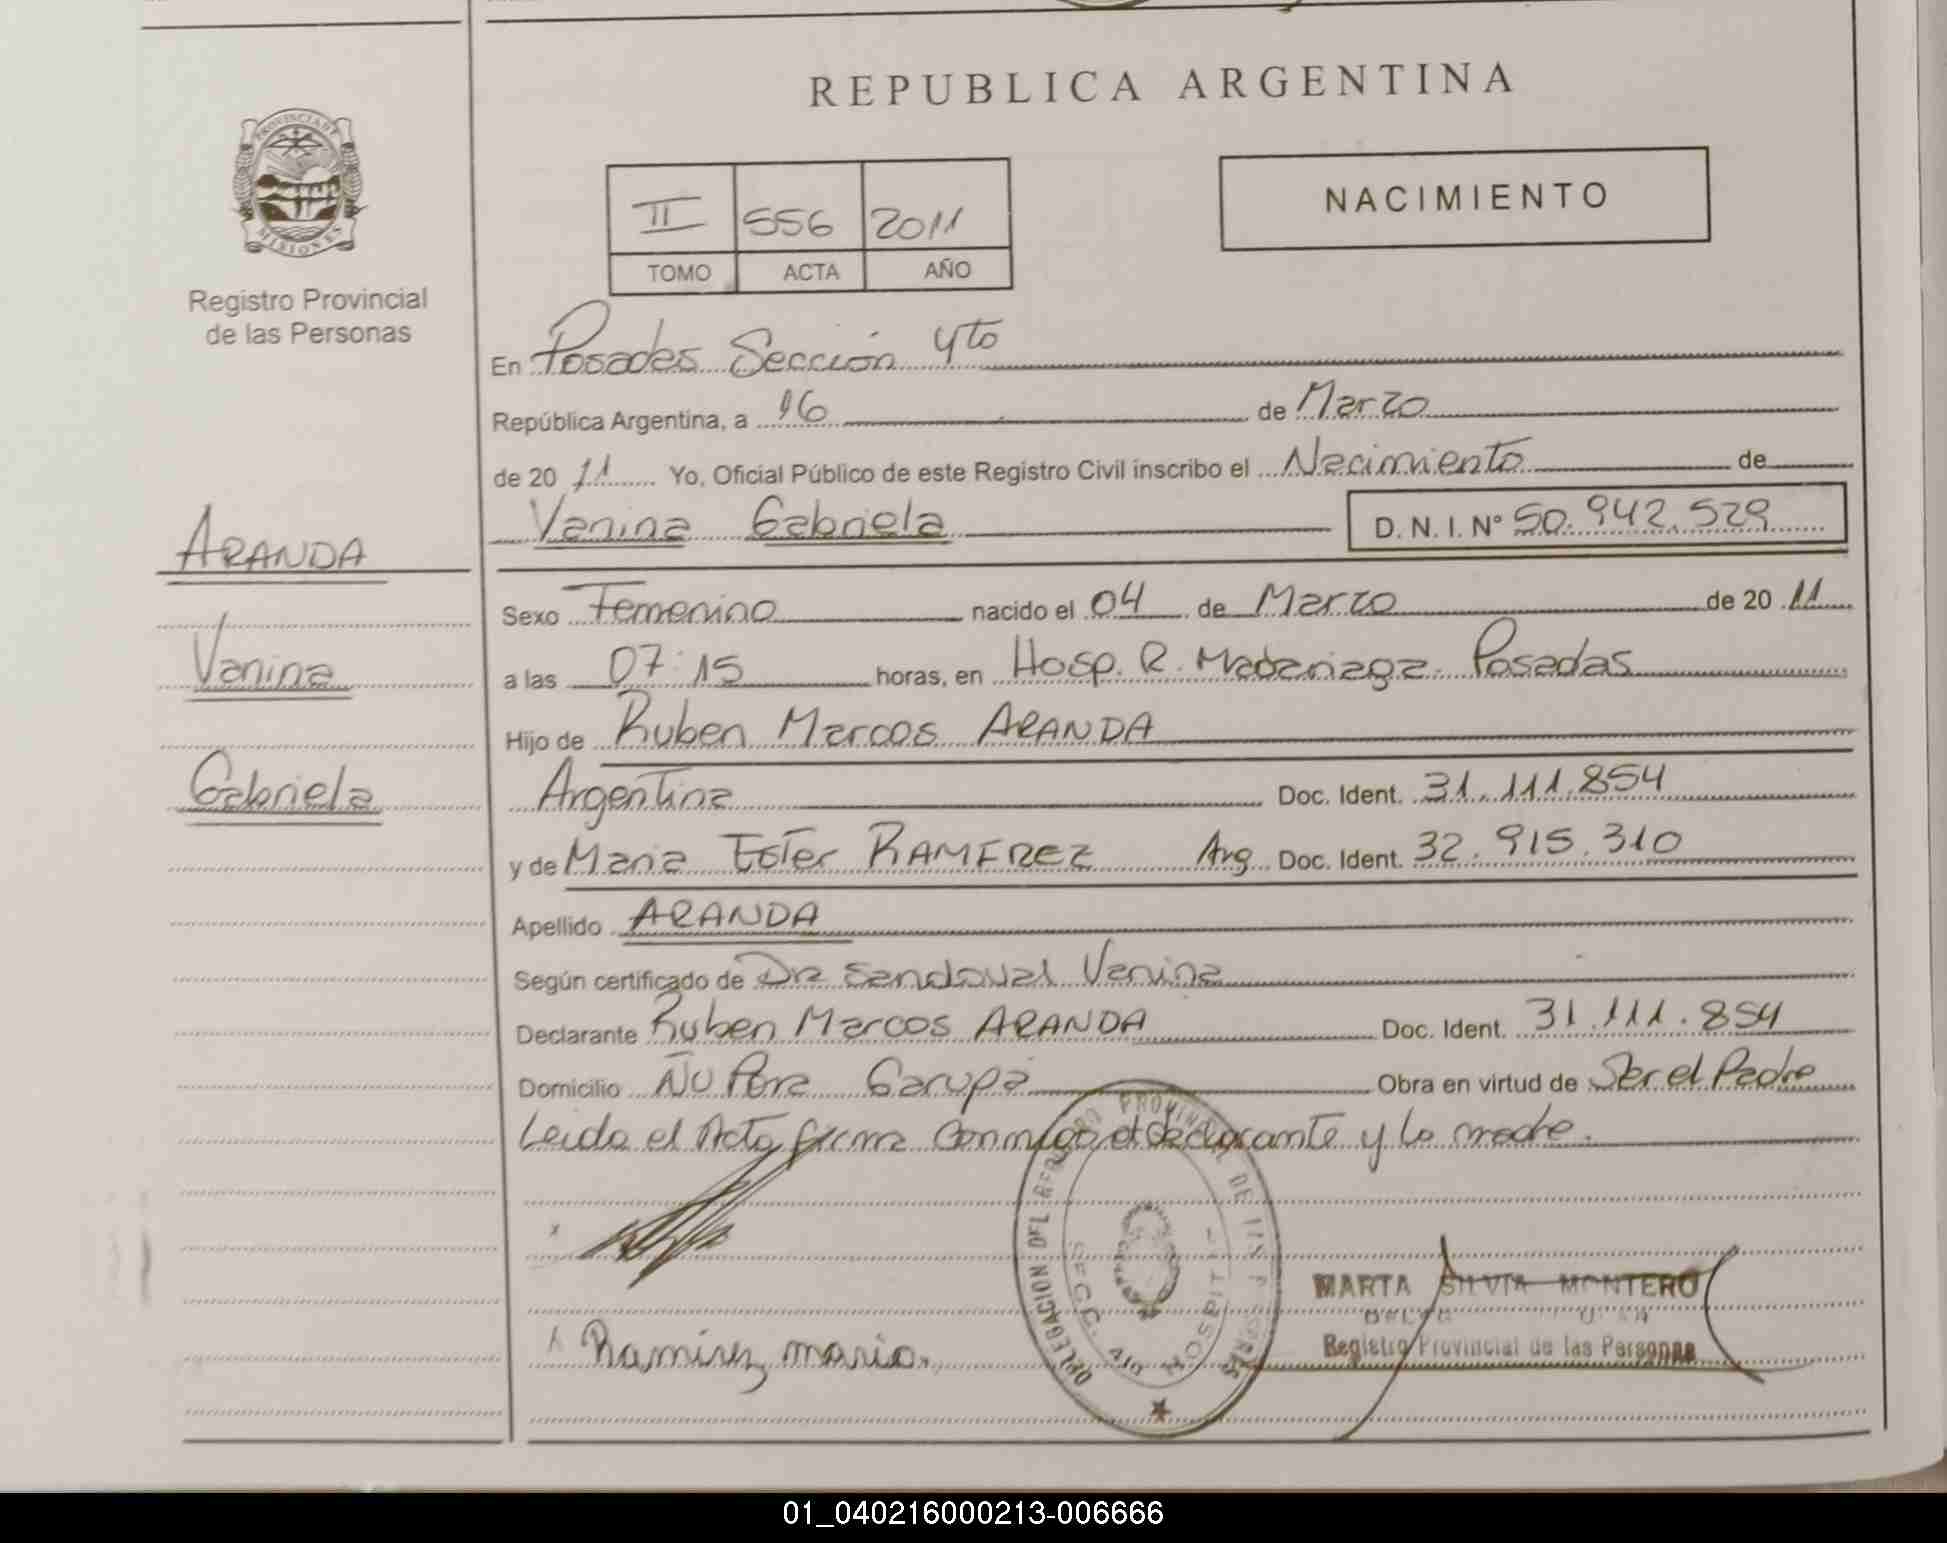 REPUBLICA ARGENTINA
PROVINCIA DE
MISIONES
Registro Provincial
de las Personas
NACIMIENTO
II 556 2011
TOMO ACTA AÑO
En Posadas Sección 4to
República Argentina, a 16 de Marzo
de 20 11 Yo, Oficial Público de este Registro Civil inscribo el Nacimiento de
Vanina Gabriela D. N. I. Nº 50.942.529
ARANDA
Vanina
Gabriela
Sexo Femenino nacido el 04 de Marzo de 20 11
a las 07:15 horas, en Hosp. R. Madariaga. Posadas
Hijo de Ruben Marcos ARANDA
Argentina Doc. Ident. 31.111.854
y de Maria Ester RAMIREZ Arg. Doc. Ident. 32.915.310
Apellido ARANDA
Según certificado de Dra Sandoval Vanina
Declarante Ruben Marcos ARANDA Doc. Ident. 31.111.854
Domicilio Ñu Pora Garupa Obra en virtud de Ser el Padre
Leida el Acta firma conmigo el declarante y la madre.
DELEGACION DEL REGISTRO PROVINCIAL DE LAS PERSONAS
SECC. 4to HOSPITAL
MARTA SILVIA MONTERO
Registro Provincial de las Personas
Ramirez maria.
01_040216000213-006666